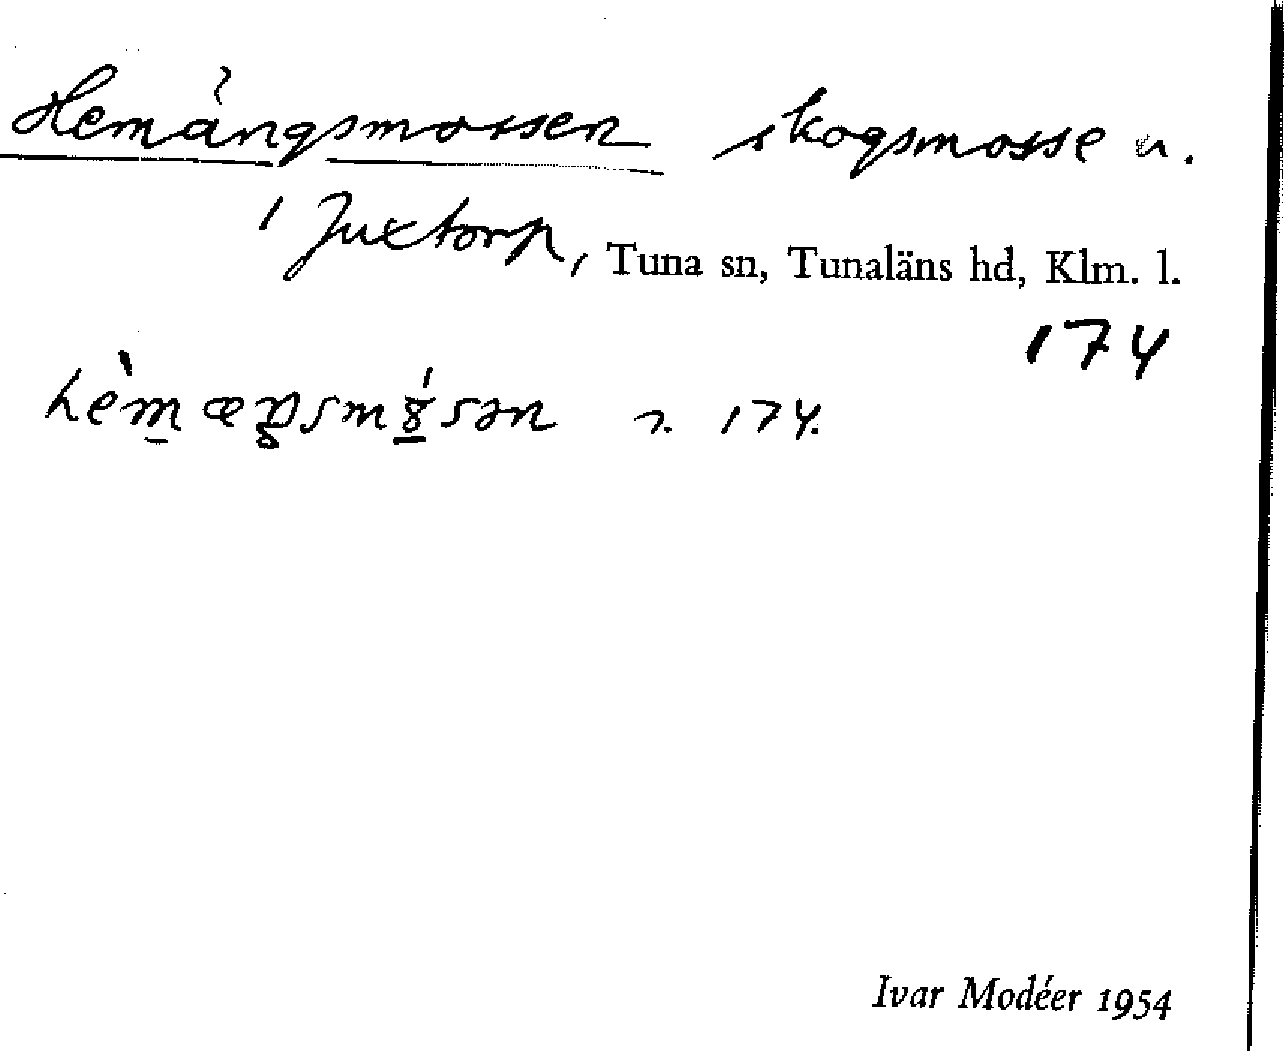 Hemängsmossen skogsmosse n.
i Juxtorp, Tuna sn, Tunaläns hd, Klm. l.
174
174.
Ivar Modéer 1954